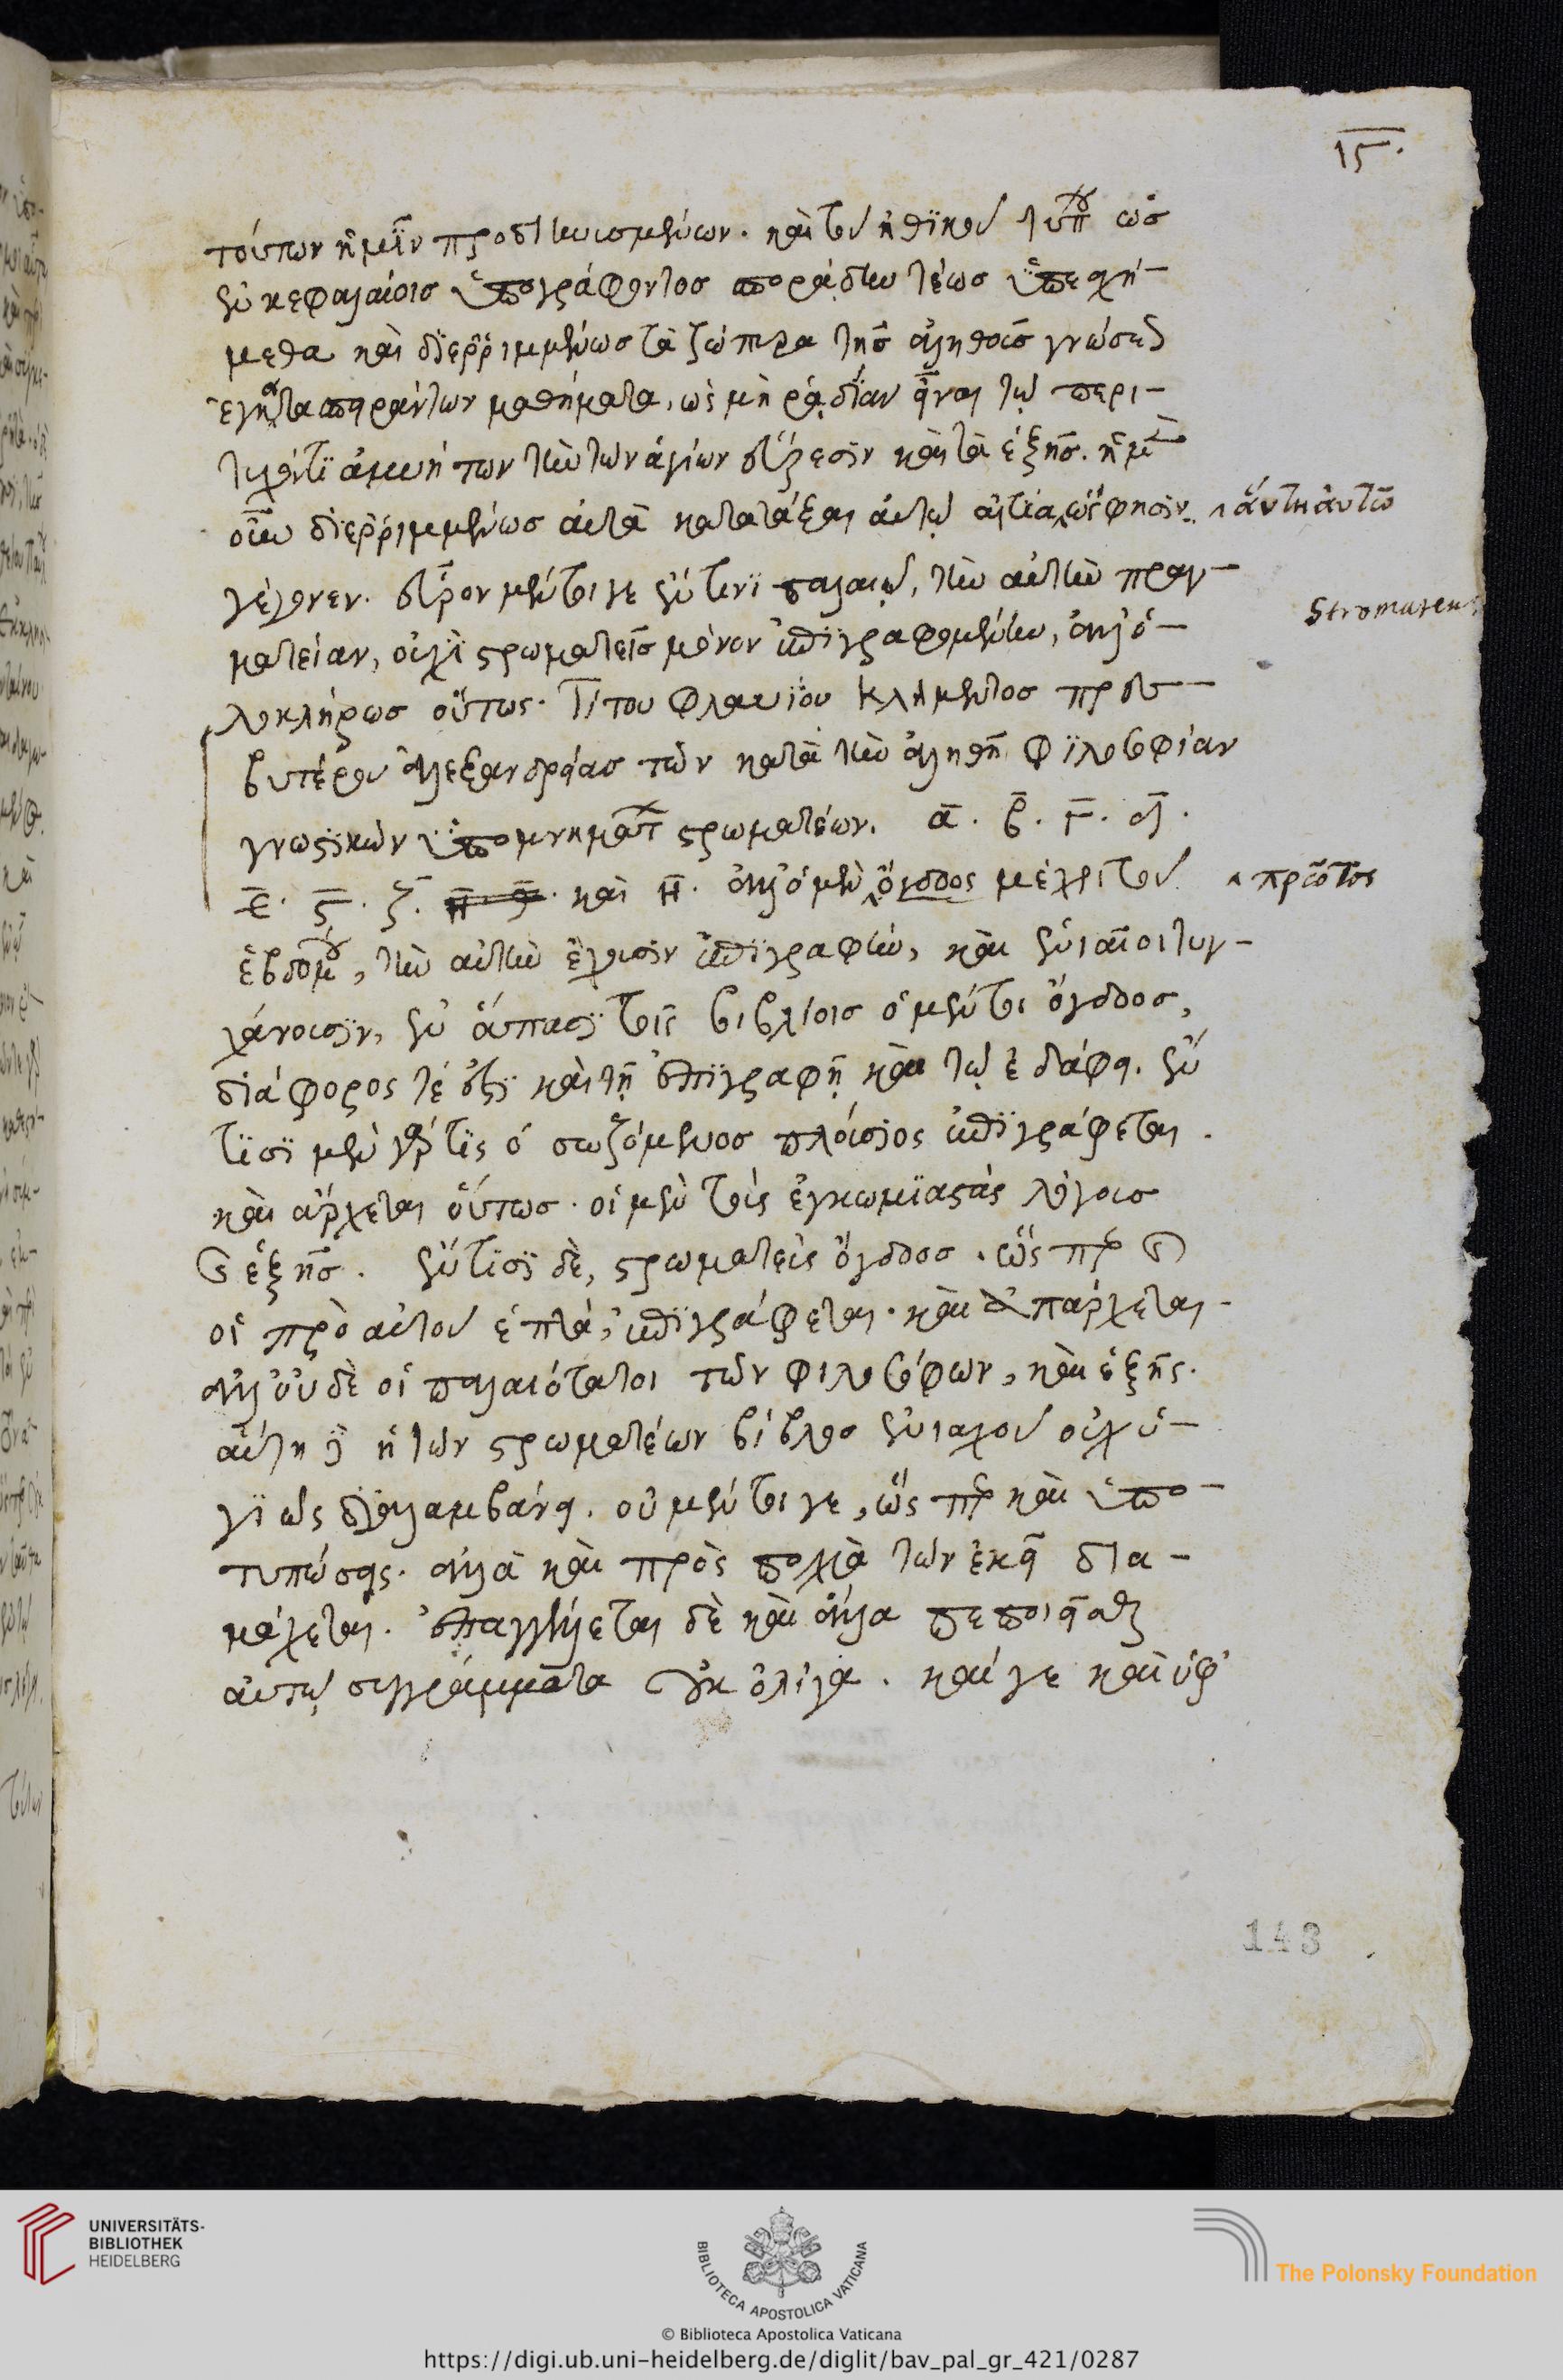 ιϛ.
τούτων ἡμῖν προδιηνυσμένων. καὶ τοῦ ἠθικοῦ τύπου ὡς
ἐν κεφαλαίοις ὑπογράφοντος σποράδην τέως ὑπεσχή-
μεθα καὶ διεῤῥιμμένως τὰ ζώπυρα τῆς ἀληθοῦς γνώσεως
ἐγκατασπειράντων μαθήματα, ὡς μὴ ῥᾳδίαν εἶναι τῷ περι-
τυχόντι ἀμυήτων τὴν τῶν ἁγίων εὕρεσιν καὶ τὰ ἑξῆς. ἡ μὲν
οὖν διεῤῥιμμένως αὐτὰ κατατάξαι αὐτῷ αἰτία, ὥς φησιν.
γέγονεν. εὗρον μέντοι γε ἔν τινι παλαιῷ, τὴν αὐτὴν πραγ-
Stromateus
ματείαν, οὐχὶ στρωματεῖς μόνον ἐπιγραφομένην, ἀλλ' ὁ-
λοκλήρως οὕτως. Τίτου Φλαυΐου Κλήμεντος πρεσ-
βυτέρου ἀλεξανδρείας τῶν κατὰ τὴν ἀληθῆ φιλοσοφίαν
γνωστικῶν ὑπομνημάτων στρωματέων. α. β. γ. δ.
ε. ϛ. ζ. καὶ η. ἀλλ' ὁ μὲν ὄγδοος μέχρι τοῦ ‸ πρῶτος
ἑβδόμου, τὴν αὐτὴν ἔχουσιν ἐπιγραφὴν, καὶ ἑνιαῖοι τυγ-
χάνουσιν, ἐν ἅπασι τοῖς βιβλίοις ὁ μέντοι ὄγδοος,
διάφορος τέ ἐστι καὶ τῇ ἐπιγραφῇ καὶ τῷ ἐδάφει. ἔν
τισι μὲν γὰρ τίς ὁ σωζόμενος πλούσιος ἐπιγράφεται.
καὶ ἄρχεται οὕτως. οἱ μὲν τοὺς ἐγκωμιαστὰς λόγους
καὶ ἑξῆς. ἔν τισι δὲ, στρωματεὺς ὄγδοος. ὥσπερ καὶ
οἱ πρὸ αὐτοῦ ἑπτά, ἐπιγράφεται. καὶ ἀπάρχεται
ἀλλ' οὐδὲ οἱ παλαιότατοι τῶν φιλοσόφων, καὶ ἑξῆς.
αὕτη δὲ ἡ τῶν στρωματέων βίβλος ἐνιαχοῦ οὐχ ὑ-
γιῶς διαλαμβάνει. οὐ μέντοι γε, ὥσπερ καὶ ὑπο-
τυπώσεις. ἀλλὰ καὶ πρὸς πολλὰ τῶν ἐκεῖ δια-
μάχεται. ἐπαγγέλλεται δὲ καὶ ἄλλα πεποιεῖσθαι
αὐτῷ συγγράμματα οὐκ ὀλίγα. καί γε καὶ ὑφ'
143
UNIVERSITÄTS-
BIBLIOTHEK
HEIDELBERG
BIBLIOTECA APOSTOLICA VATICANA
© Biblioteca Apostolica Vaticana
The Polonsky Foundation
https://digi.ub.uni-heidelberg.de/diglit/bav_pal_gr_421/0287